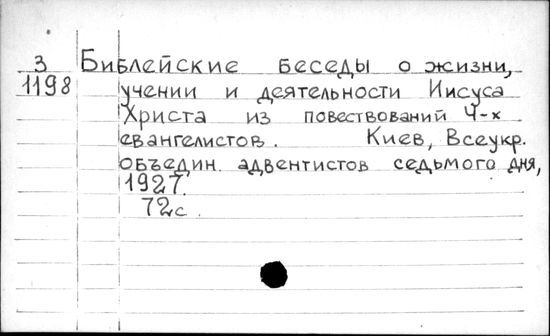 З Библейские беседы о жизни,
1198 учении и деятельности Иисуса
Христа из повествований 4-х
евангелистов. Киев, Всеукр.
объедин. адвентистов седьмого дня,
1927.
72с.